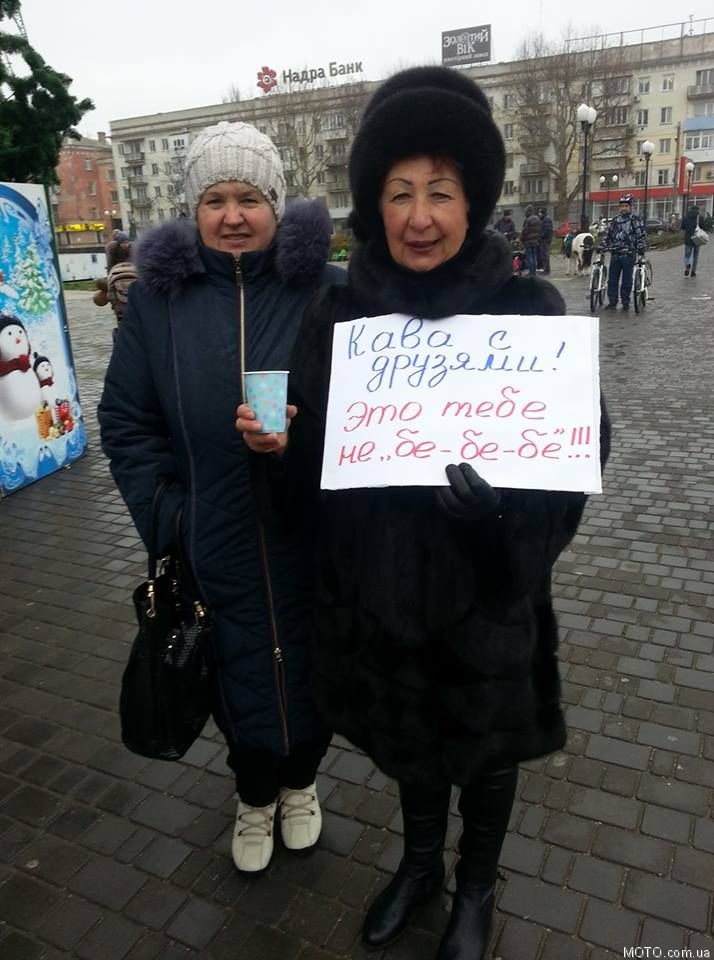 Надра Банк
Золотий
ВіК
Кава с
друзями!
Это тебе
не „бе-бе-бе"!!!
MOTO.com.ua